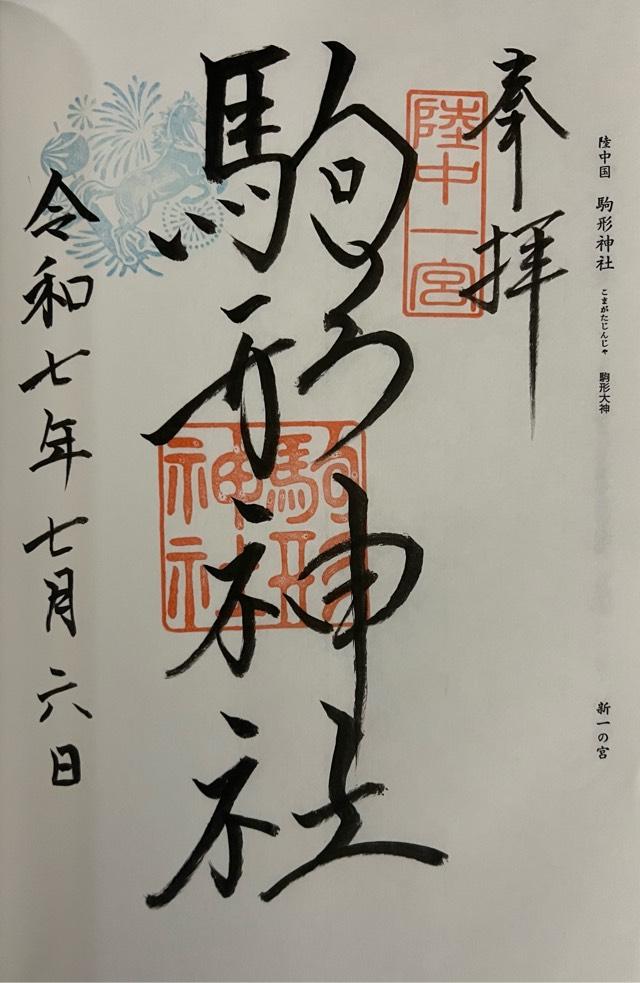 陸中国 駒形神社 こまがたじんじゃ 駒形大神
新一の宮
奉拝
陸中一宮
駒形神社
駒形
神社
令和七年七月六日